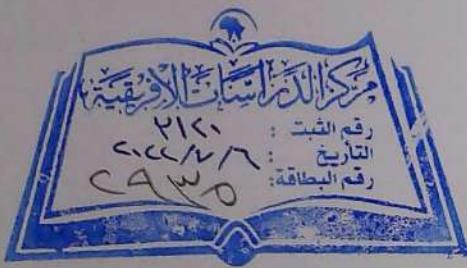 مركز الدراسات الافريقية
رقم الثبت : ٣١٢١
التأريخ : ٢٠٢٢/٧/٦
رقم البطاقة: ٢٩٣٥